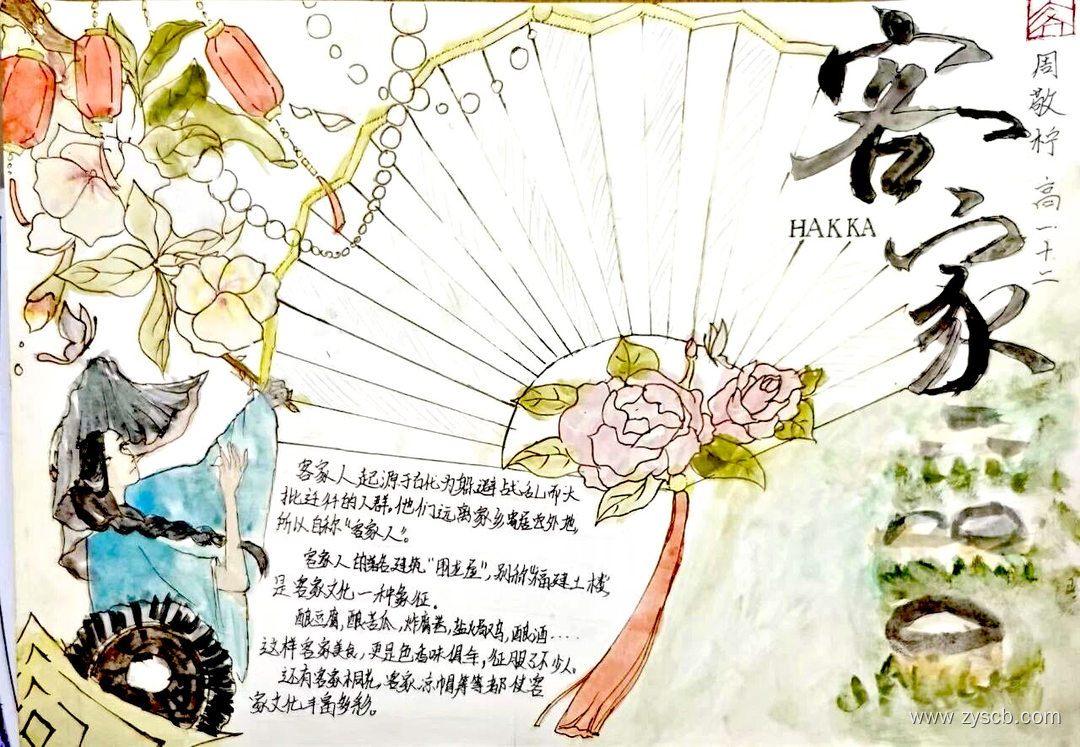 客家
HAKKA
周敬柠 高一十二
客家人起源于古代为躲避战乱而大
批迁徙的人群,他们远离家乡寄居在外地,
所以自称“客家人”。
客家人的著名建筑“围龙屋”,别称“福建土楼”
是客家文化一种象征。
酿豆腐,酿苦瓜,炸腐卷,盐焗鸡,酿酒····
这样客家美食,更是色香味俱全,征服了不少人。
还有客家桐花,客家凉帽舞等都使客
家文化丰富多彩。
www.zyscb.com